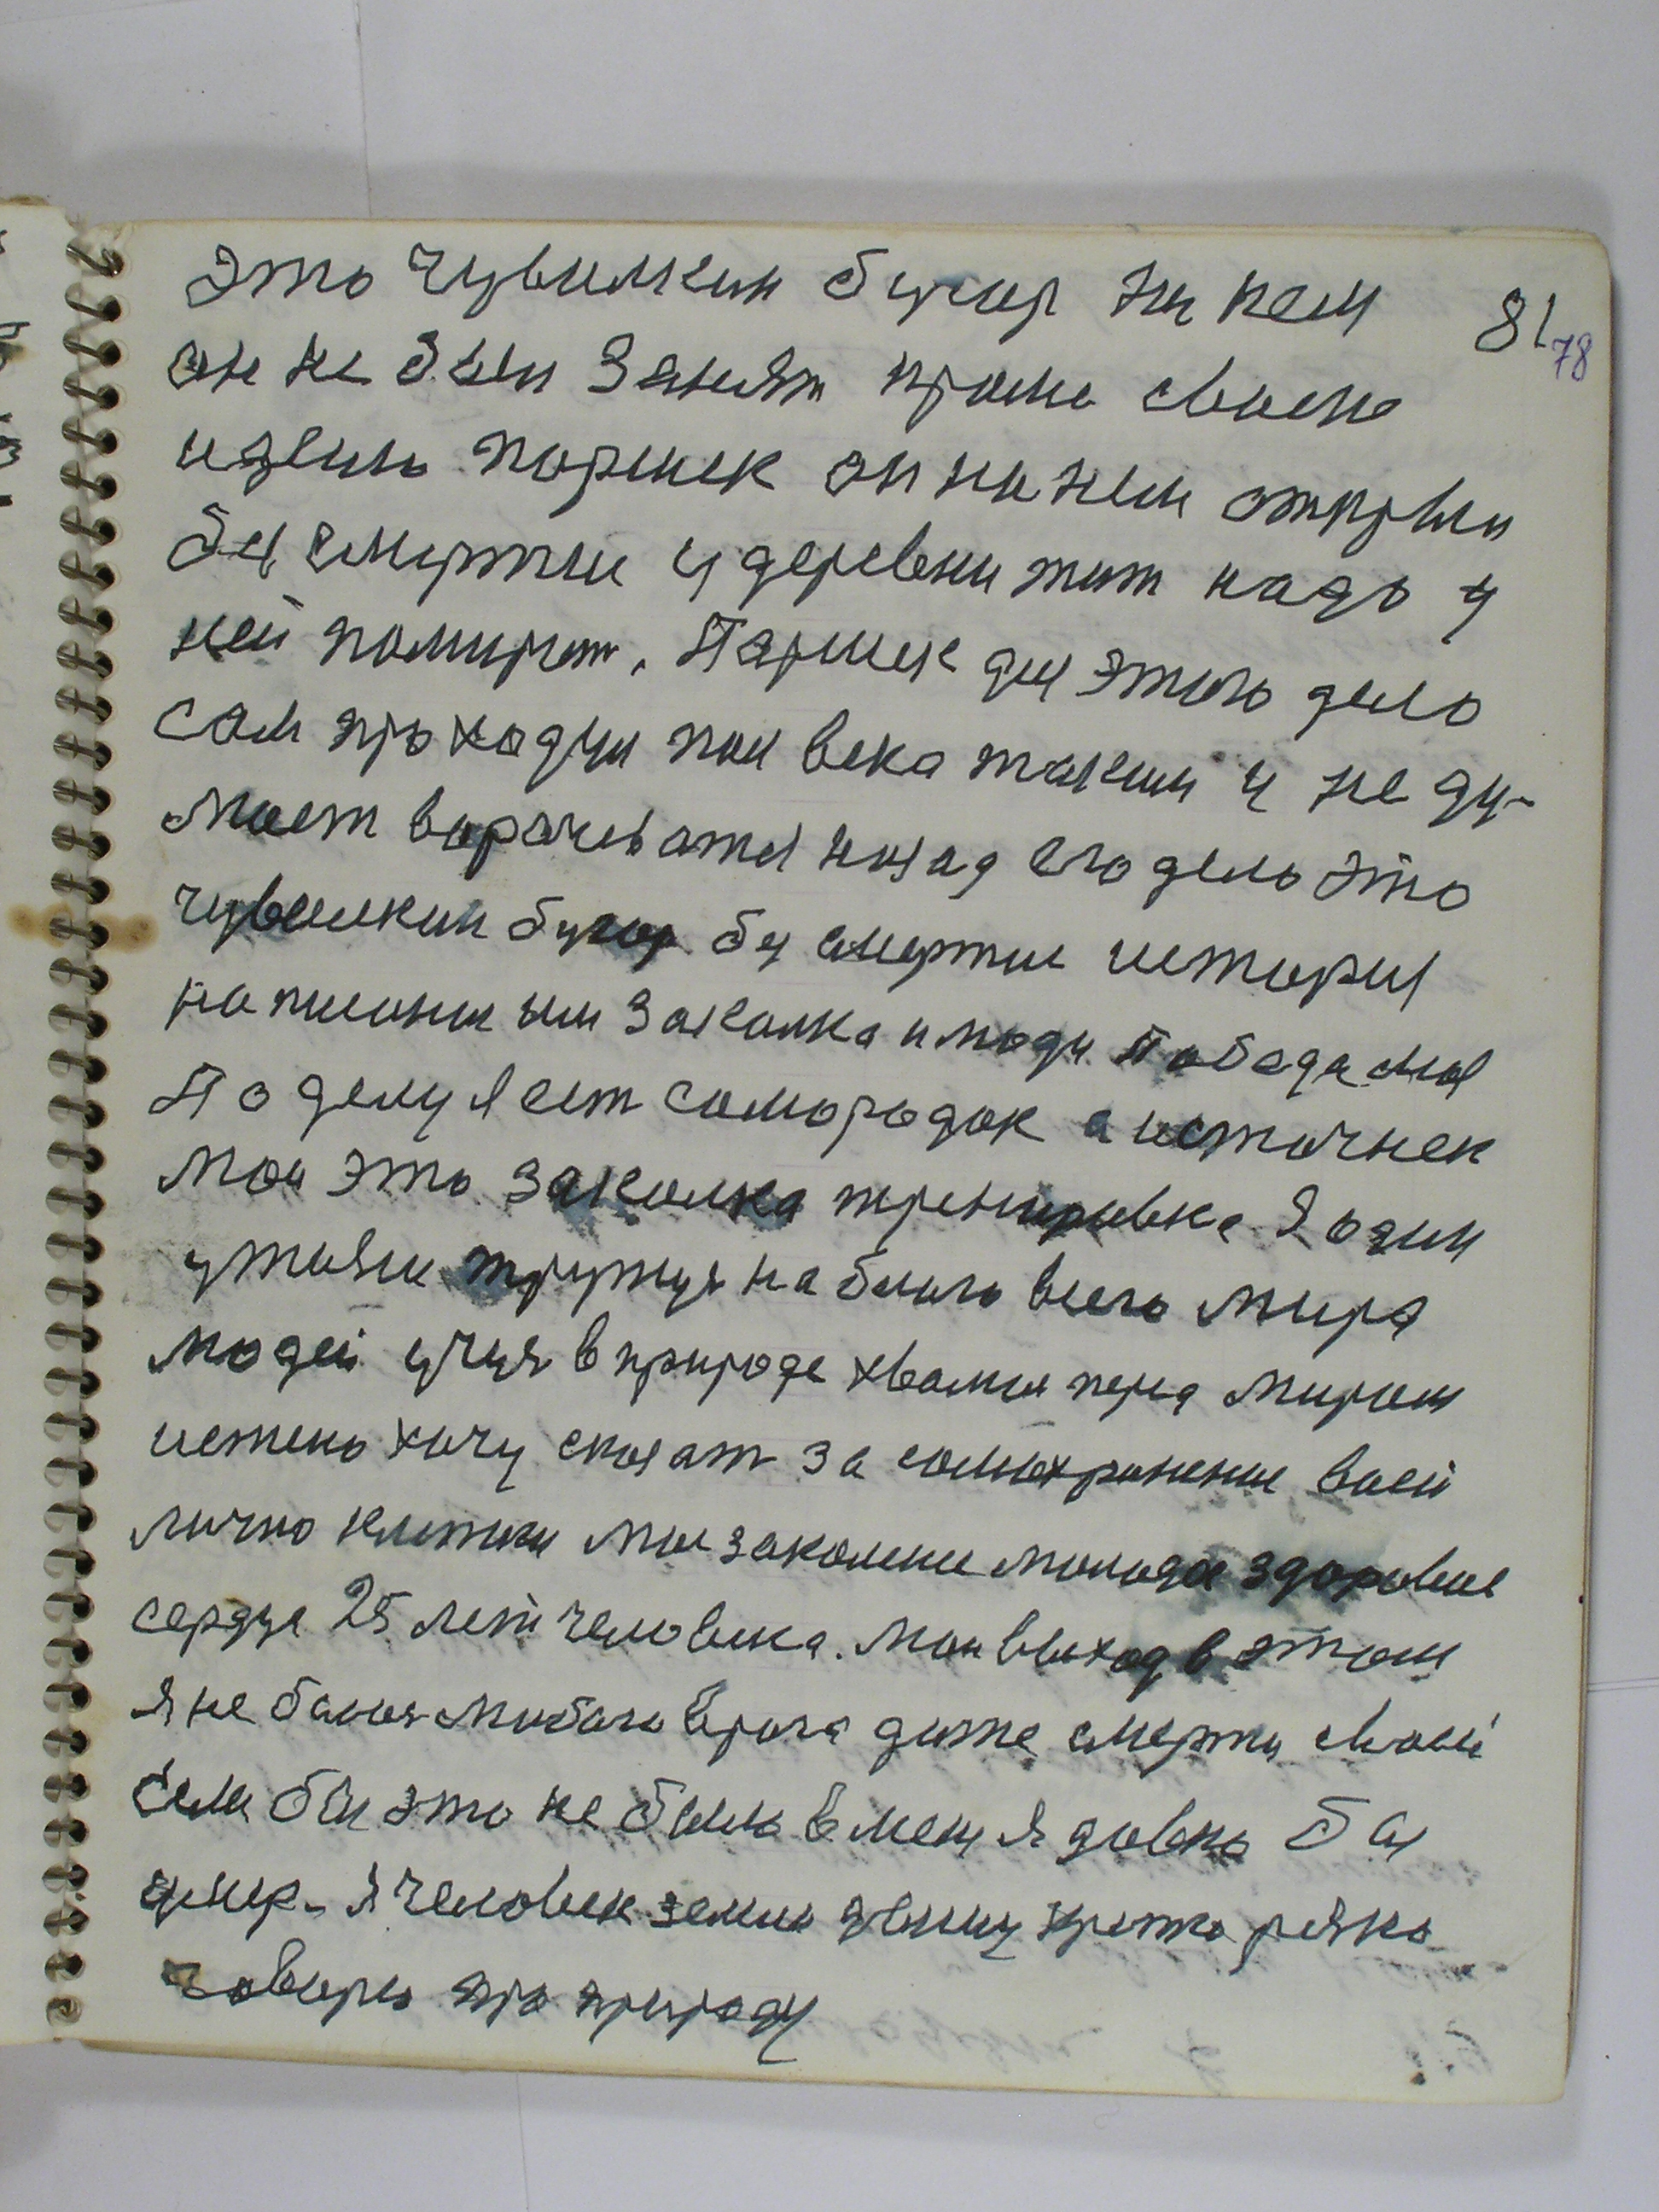 Это чувилкин бугор ни кем
81
78
он не был занят кроме своею
идеию паршек он на нем открыл
бы смертие у деревни жит надо у
ней помират. Паршек для этого дела
сам проходил пол века таким и не ду-
мает ворачеватся назад его дело это
чувилкин бугор бы смертие история
написаный закалка и люди победа моя
По делу я ест самородок а источнек
мой это закалка тренировка Я один
у тояви тружуся на благо всего мира
людей учуся в природе хвалюся перед миром
истено хочу сказат за самохранение своей
лично клетки мое закаление молодое здоровие
сердце 25 лет человека. мой выход в этом
Я не боюся любого врага даже смерти своей
если бы это не было в мену я давно бы
умер. Я человек земли дышу крепко резко
говорю про природу